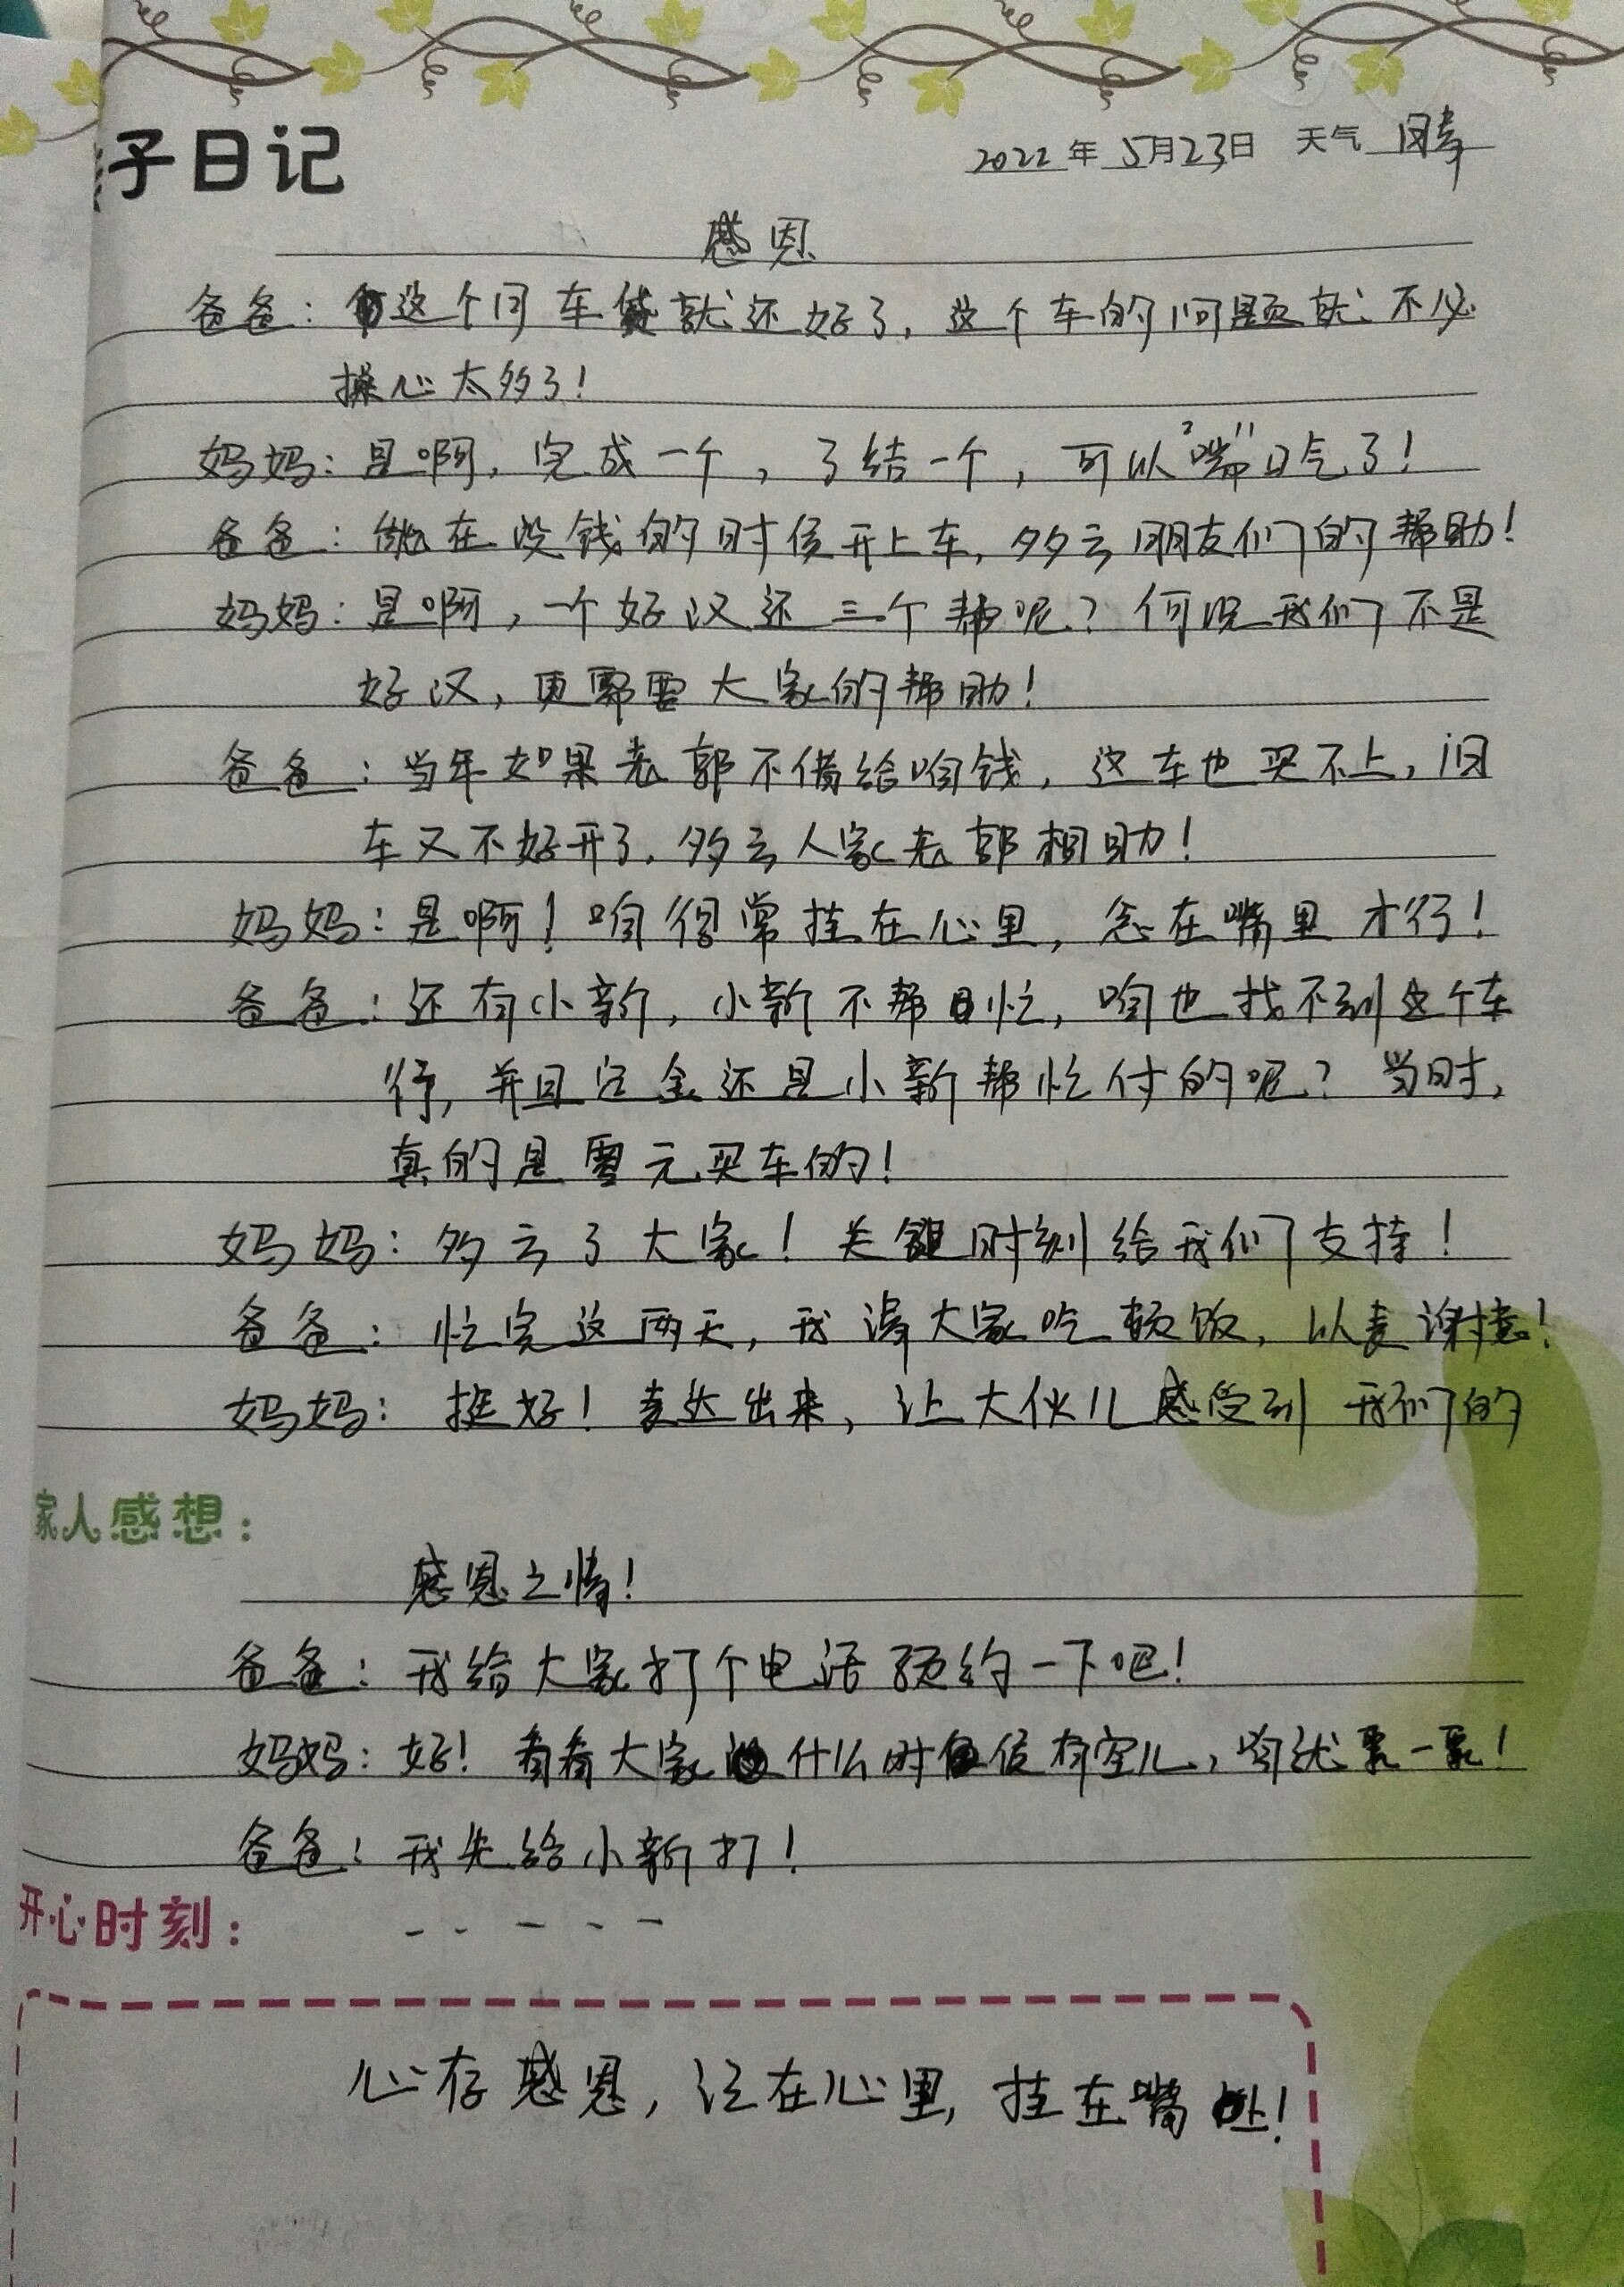 子日记
2022年5月23日 天气
感恩
爸爸：这个月车贷就还好了，这个车的问题就不必
操心太多了！
妈妈：是啊，完成一个，了结一个，可以“喘”口气了！
爸爸：能在没钱的时侯开上车，多亏朋友们的帮助！
妈妈：是啊，一个好汉还三个帮呢？何况我们不是
好汉，更需要大家的帮助！
爸爸：当年如果老郭不借给咱钱，这车也买不上，旧
车又不好开了，多亏人家老郭相助！
妈妈：是啊！咱得常挂在心里，念在嘴里才行！
爸爸：还有小新，小新不帮忙，咱也找不到这个车
行，并且定金还是小新帮忙付的呢？当时，
真的是零元买车的！
妈妈：多亏了大家！关键时刻给我们支持！
爸爸：忙完这两天，我请大家吃顿饭，以表谢意！
妈妈：挺好！表达出来，让大伙儿感受到我们的
家人感想：
感恩之情！
爸爸：我给大家打个电话预约一下吧！
妈妈：好！看看大家什么时侯有空儿，咱就聚一聚！
爸爸：我先给小新打！
开心时刻：
- - - - -
心存感恩，记在心里，挂在嘴上！